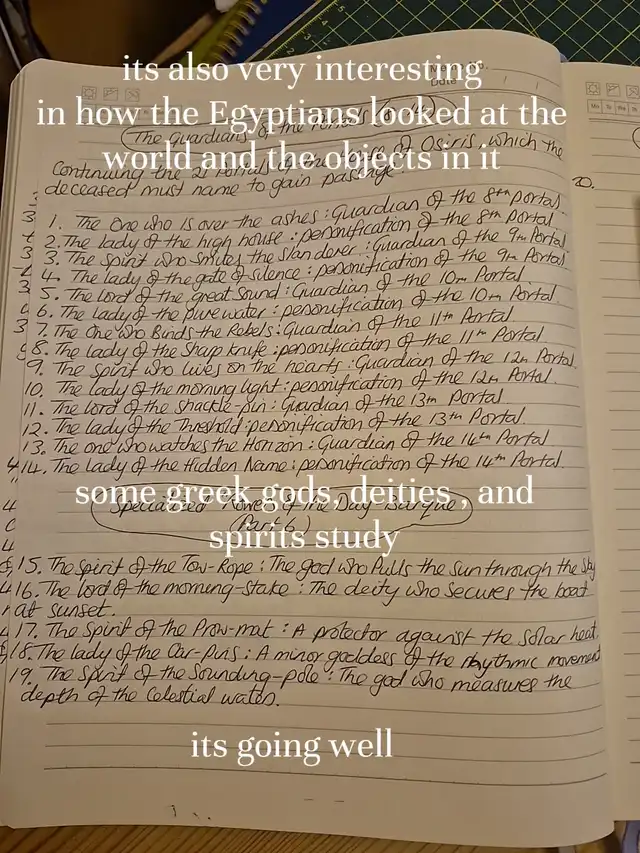 its also very interesting
Date
in how the Egyptians looked at the
The Guardians of the
world and the objects in it
Continuing the 21 of Osiris, which the
deceased must name to gain passage.
1. The One who is over the ashes : Guardian of the 8th Portal
2. The lady of the high house : personification of the 8th Portal
3. The Spirit who Smites the Slanderer : Guardian of the 9th Portal
4. The lady of the gate of silence : personification of the 9th Portal.
5. The Lord of the great Sound : Guardian of the 10th Portal
6. The Lady of the pure water : personification of the 10th Portal
7. The One who Binds the Rebels : Guardian of the 11th Portal
8. The lady of the Sharp knife : personification of the 11th Portal
9. The Spirit who lives on the hearts : Guardian of the 12th Portal.
10. The lady of the morning light : personification of the 12th Portal.
11. The lord of the shackle-pin : Guardian of the 13th Portal
12. The lady of the Threshold : personification of the 13th Portal.
13. The one who watches the Horizon : Guardian of the 14th Portal
14. The Lady of the Hidden Name : personification of the 14th Portal.
some greek gods, deities , and
Specialized of the Day Barque
(Part 6)
spirits study
15. The Spirit of the Tow-Rope : The god who Pulls the sun through the Sky
16. The lord of the morning-Stake : The deity who secures the boat
at sunset.
17. The Spirit of the Prow-mat : A protector against the Solar heat
18. The lady of the Oar-pins : A minor goddess of the rhythmic movement
19. The Spirit of the Sounding-pole : The god who measures the
depth of the Celestial water.
its going well